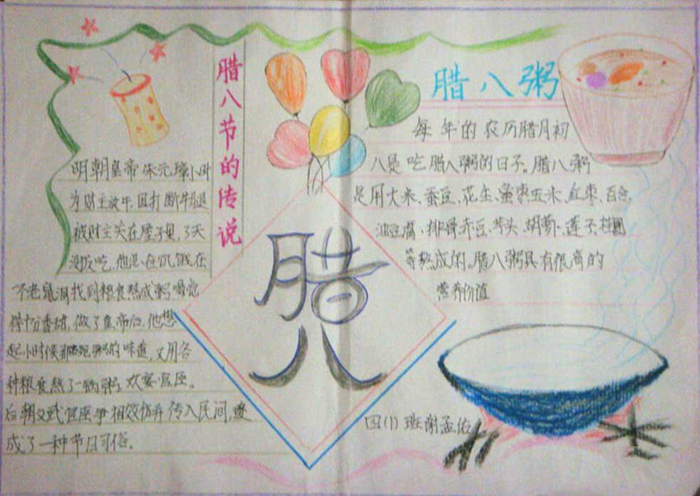 腊八节的传说
明朝皇帝朱元璋小时
为财主放牛,因打断牛腿
被财主关在屋子里,3天
没饭吃,他
找到粮食熬成粥
做了皇帝后,他想
起小时候 的味道,又用各
种粮食熬了一锅粥,欢宴官臣。
后朝文武 相效仿并传入民间,遂
成了一种节日习俗。
腊八
腊八粥
每年的农历腊月初
八是吃腊八粥的日子。腊八粥
是用大米、蚕豆、花生、 玉米、红枣、百合、
油豆腐、排骨、赤豆、芋头、胡萝卜、莲子、桂圆
等熬成的。腊八粥具有很高的
营养价值
四(1)班谢孟佑